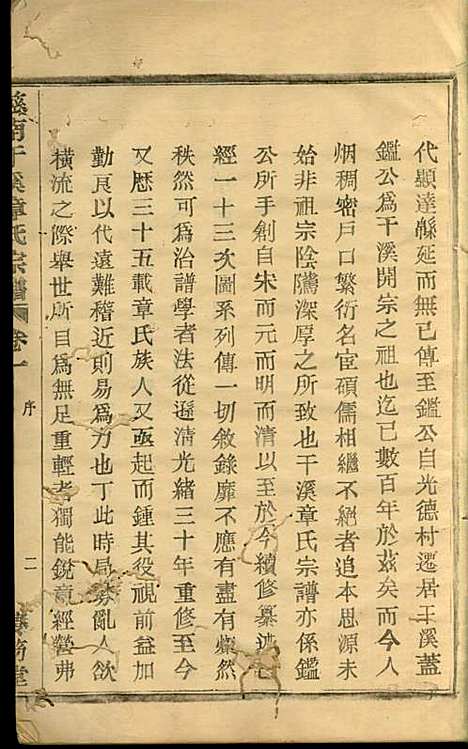 代顯達緜延而無已傳至鑑公自光德村遷居干溪蓋
鑑公爲干溪開宗之祖也迄已數百年於茲矣而今人
烟稠密戶口繁衍名宦碩儒相繼不絕者追本思源未
始非祖宗陰隲深厚之所致也干溪章氏宗譜亦係鑑
公所手創自宋而元而明而清以至於今續修纂述
經一十三次圖系列傳一切敘錄靡不應有盡有燦然
秩然可爲治譜學者法從遜清光緒三十年重修至今
又歷三十五載章氏族人又亟起而鍾其役視前益加
勤良以代遠難稽近則易爲力也丁此時局亂人欲
橫流之際舉世所目爲無足重輕者獨能銳意經營弗
慈南干溪章氏宗譜 卷一
序
二